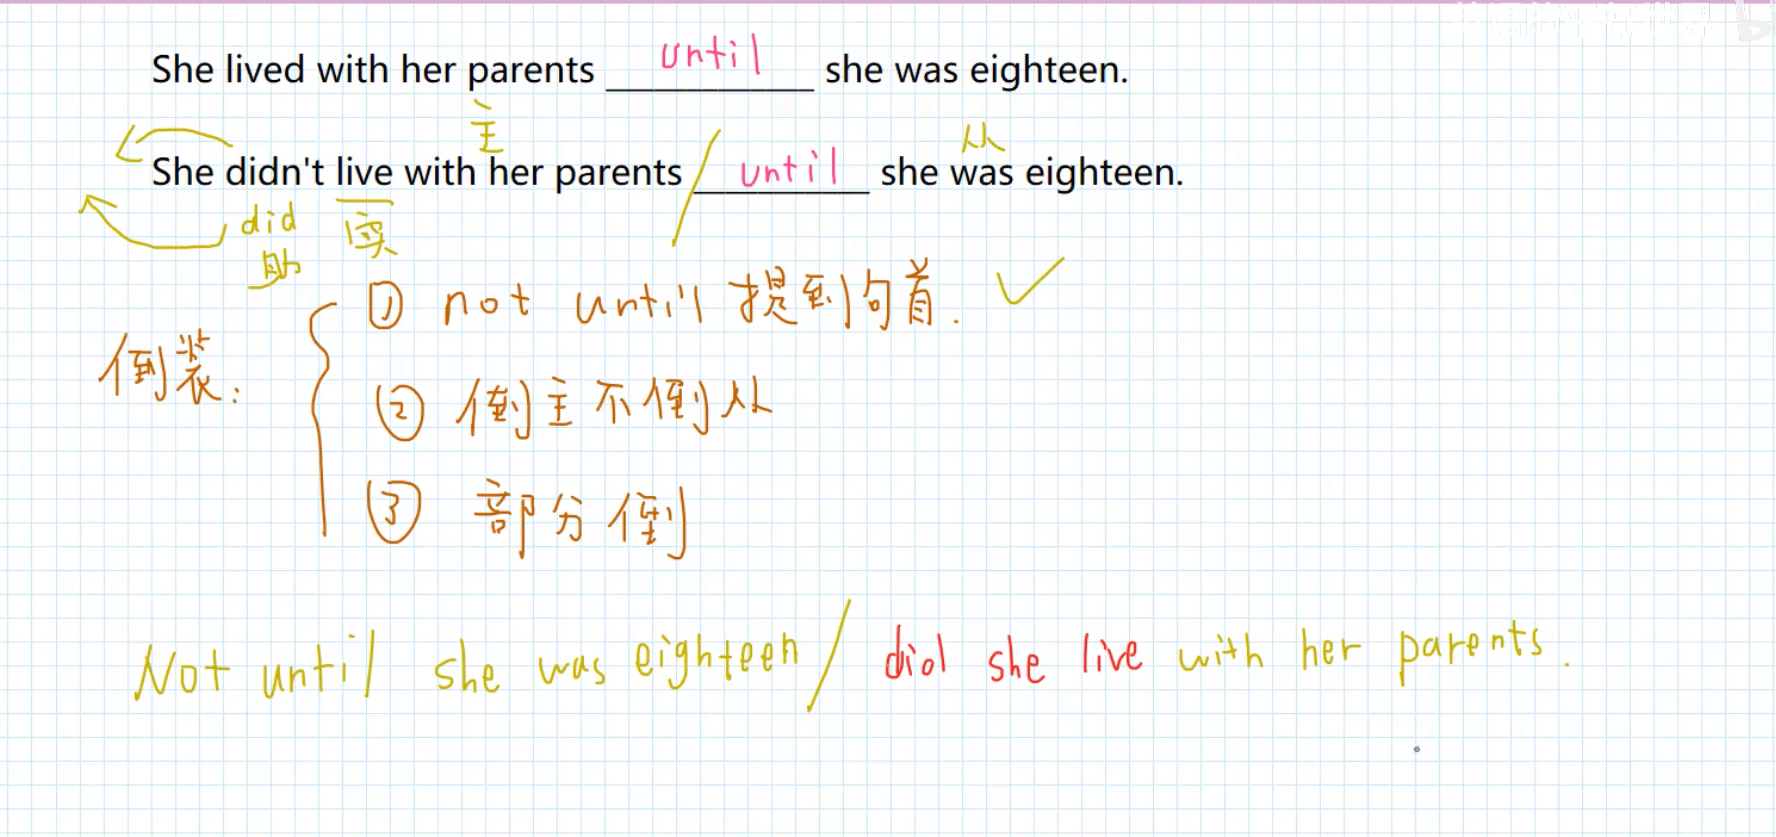 She lived with her parents until she was eighteen.
主 从
She didn't live with her parents until she was eighteen.
did 实
助
① not until 提到句首.
倒装:
② 倒主不倒从
③ 部分倒
Not until she was eighteen / did she live with her parents.